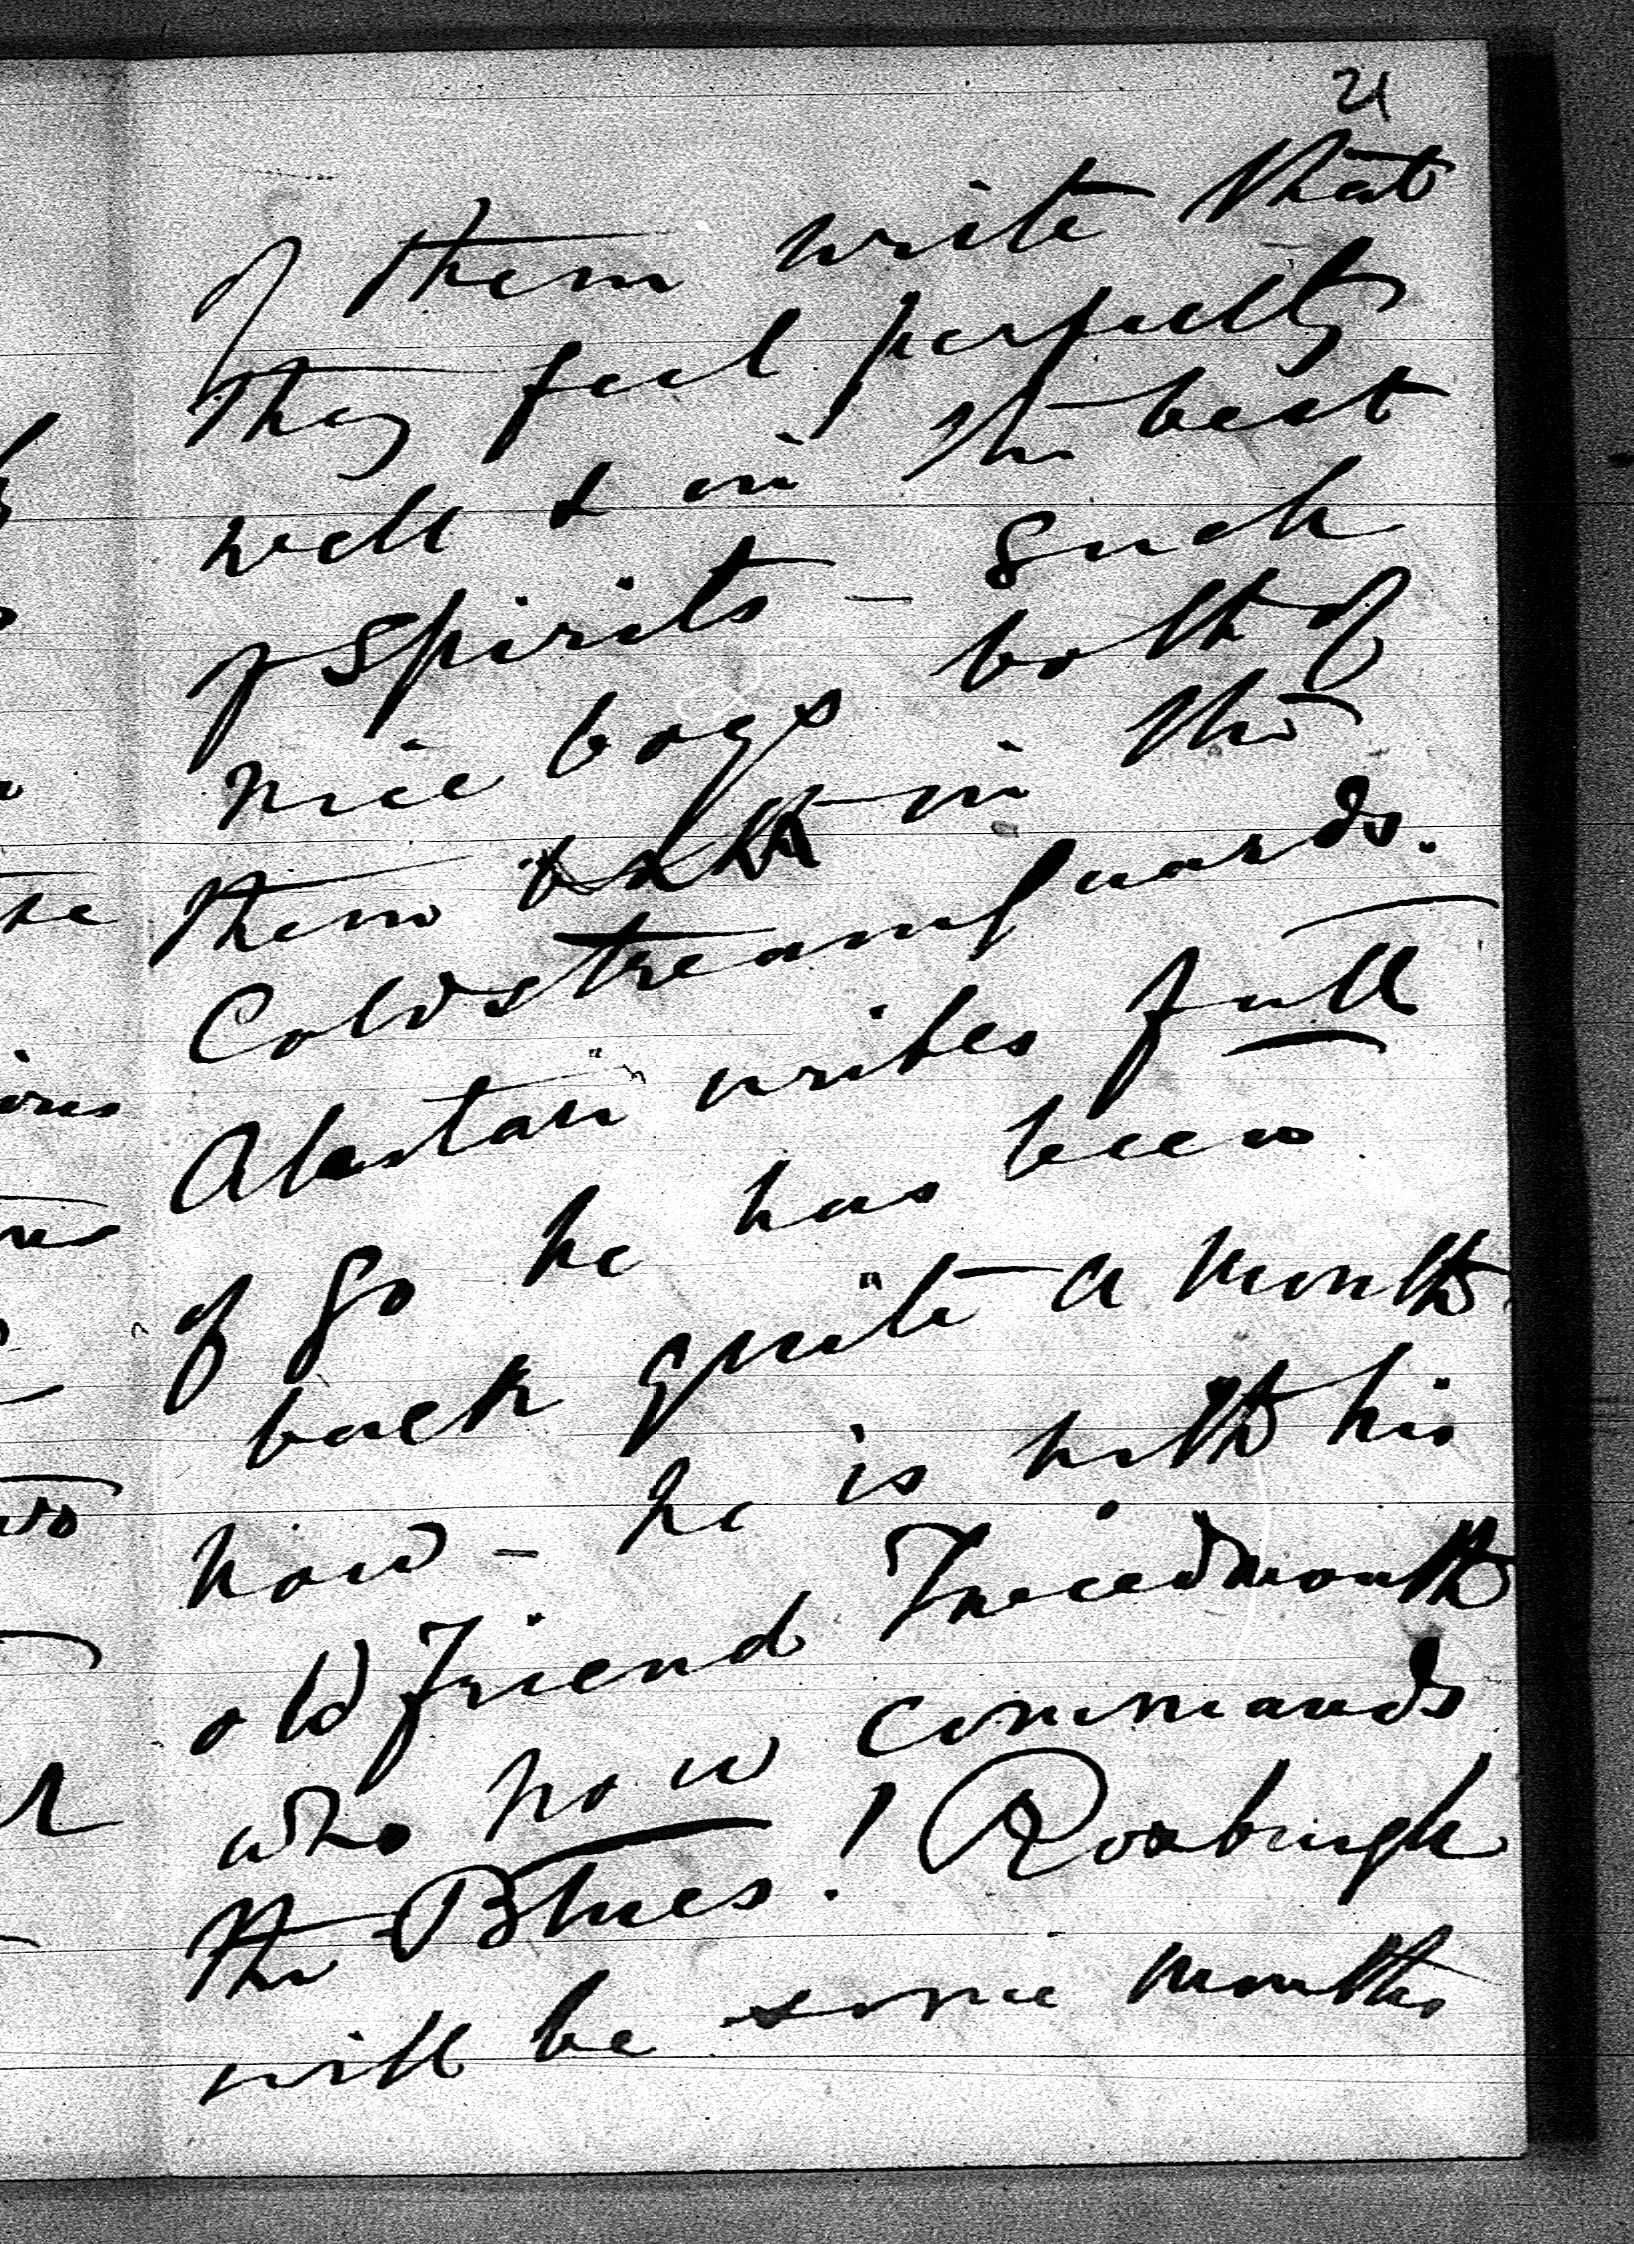 21
of them write that
they feel perfectly
well & in the best
of spirits – such
nice boys both of
them both in the
Coldstream Guards.
Alastair writes full
of go he has been
back quite a month
now – he is with his
old friend Tweedmouth
who now commands
the Blues! Roxburgh
will be some months